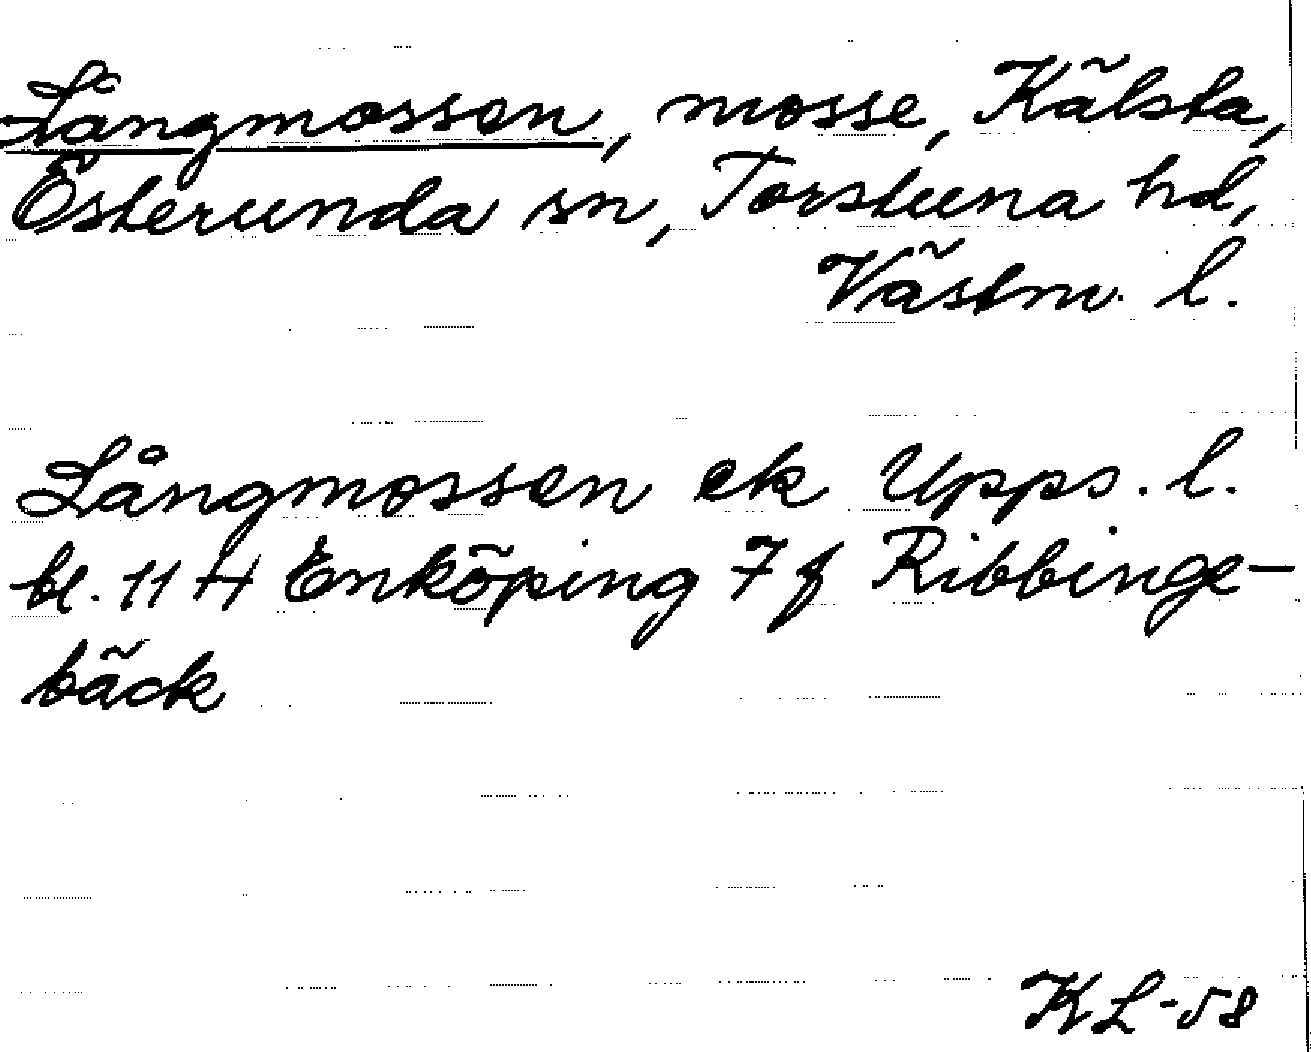 Långmossen, mosse, Kälsta,
Österunda sn, Torstuna hd,
Västm. l.
Långmossen ek Upps. l.
bl. 11 H Enköping 7 f Ribbinge-
bäck
KL-58